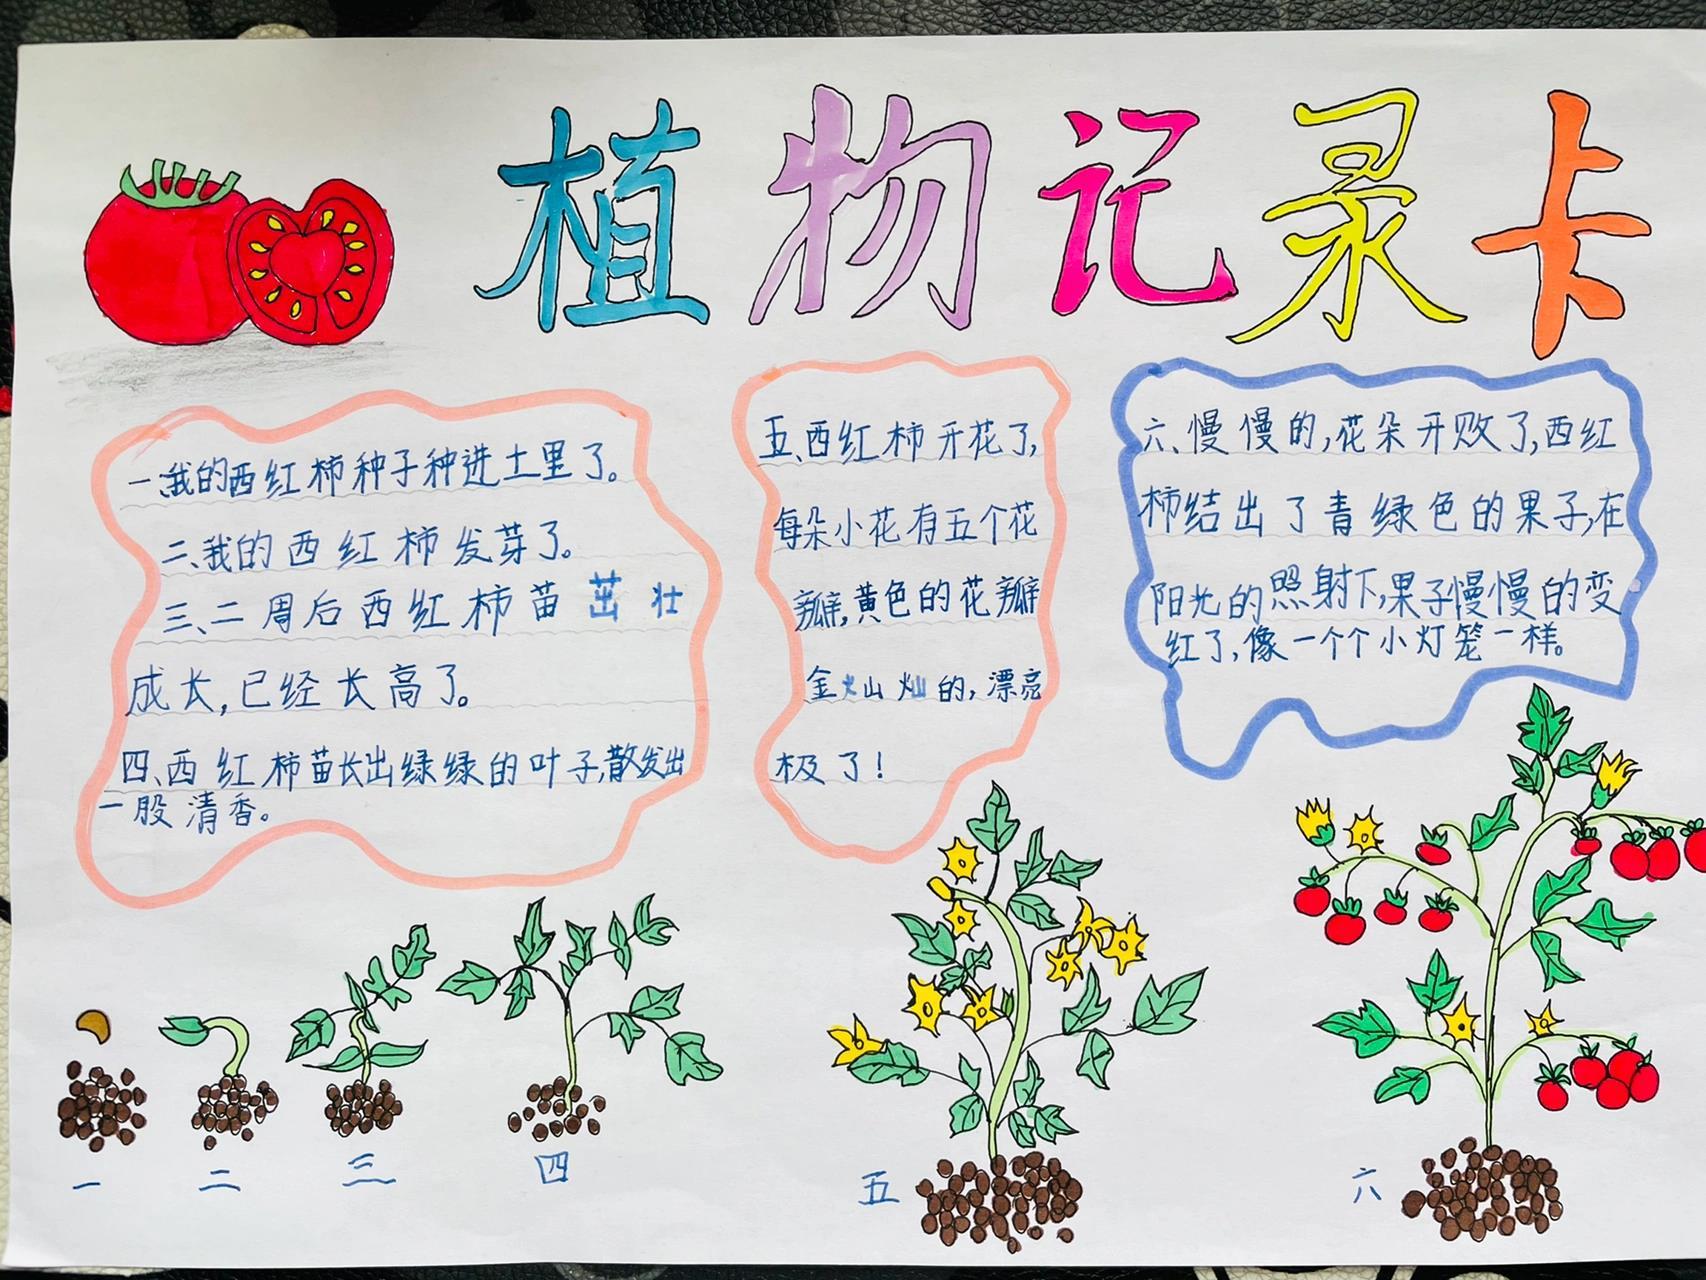 植物记录卡
一、我的西红柿种子种进土里了。
二、我的西红柿发芽了。
三、二周后西红柿苗茁壮
成长,已经长高了。
四、西红柿苗长出绿绿的叶子,散发出
一股清香。
五、西红柿开花了,
每朵小花有五个花
瓣,黄色的花瓣
金火山灿的,漂亮
极了!
六、慢慢的,花朵开败了,西红
柿结出了青绿色的果子,在
阳光的照射下,果子慢慢的变
红了,像一个个小灯笼一样。
一
二
三
四
五
六